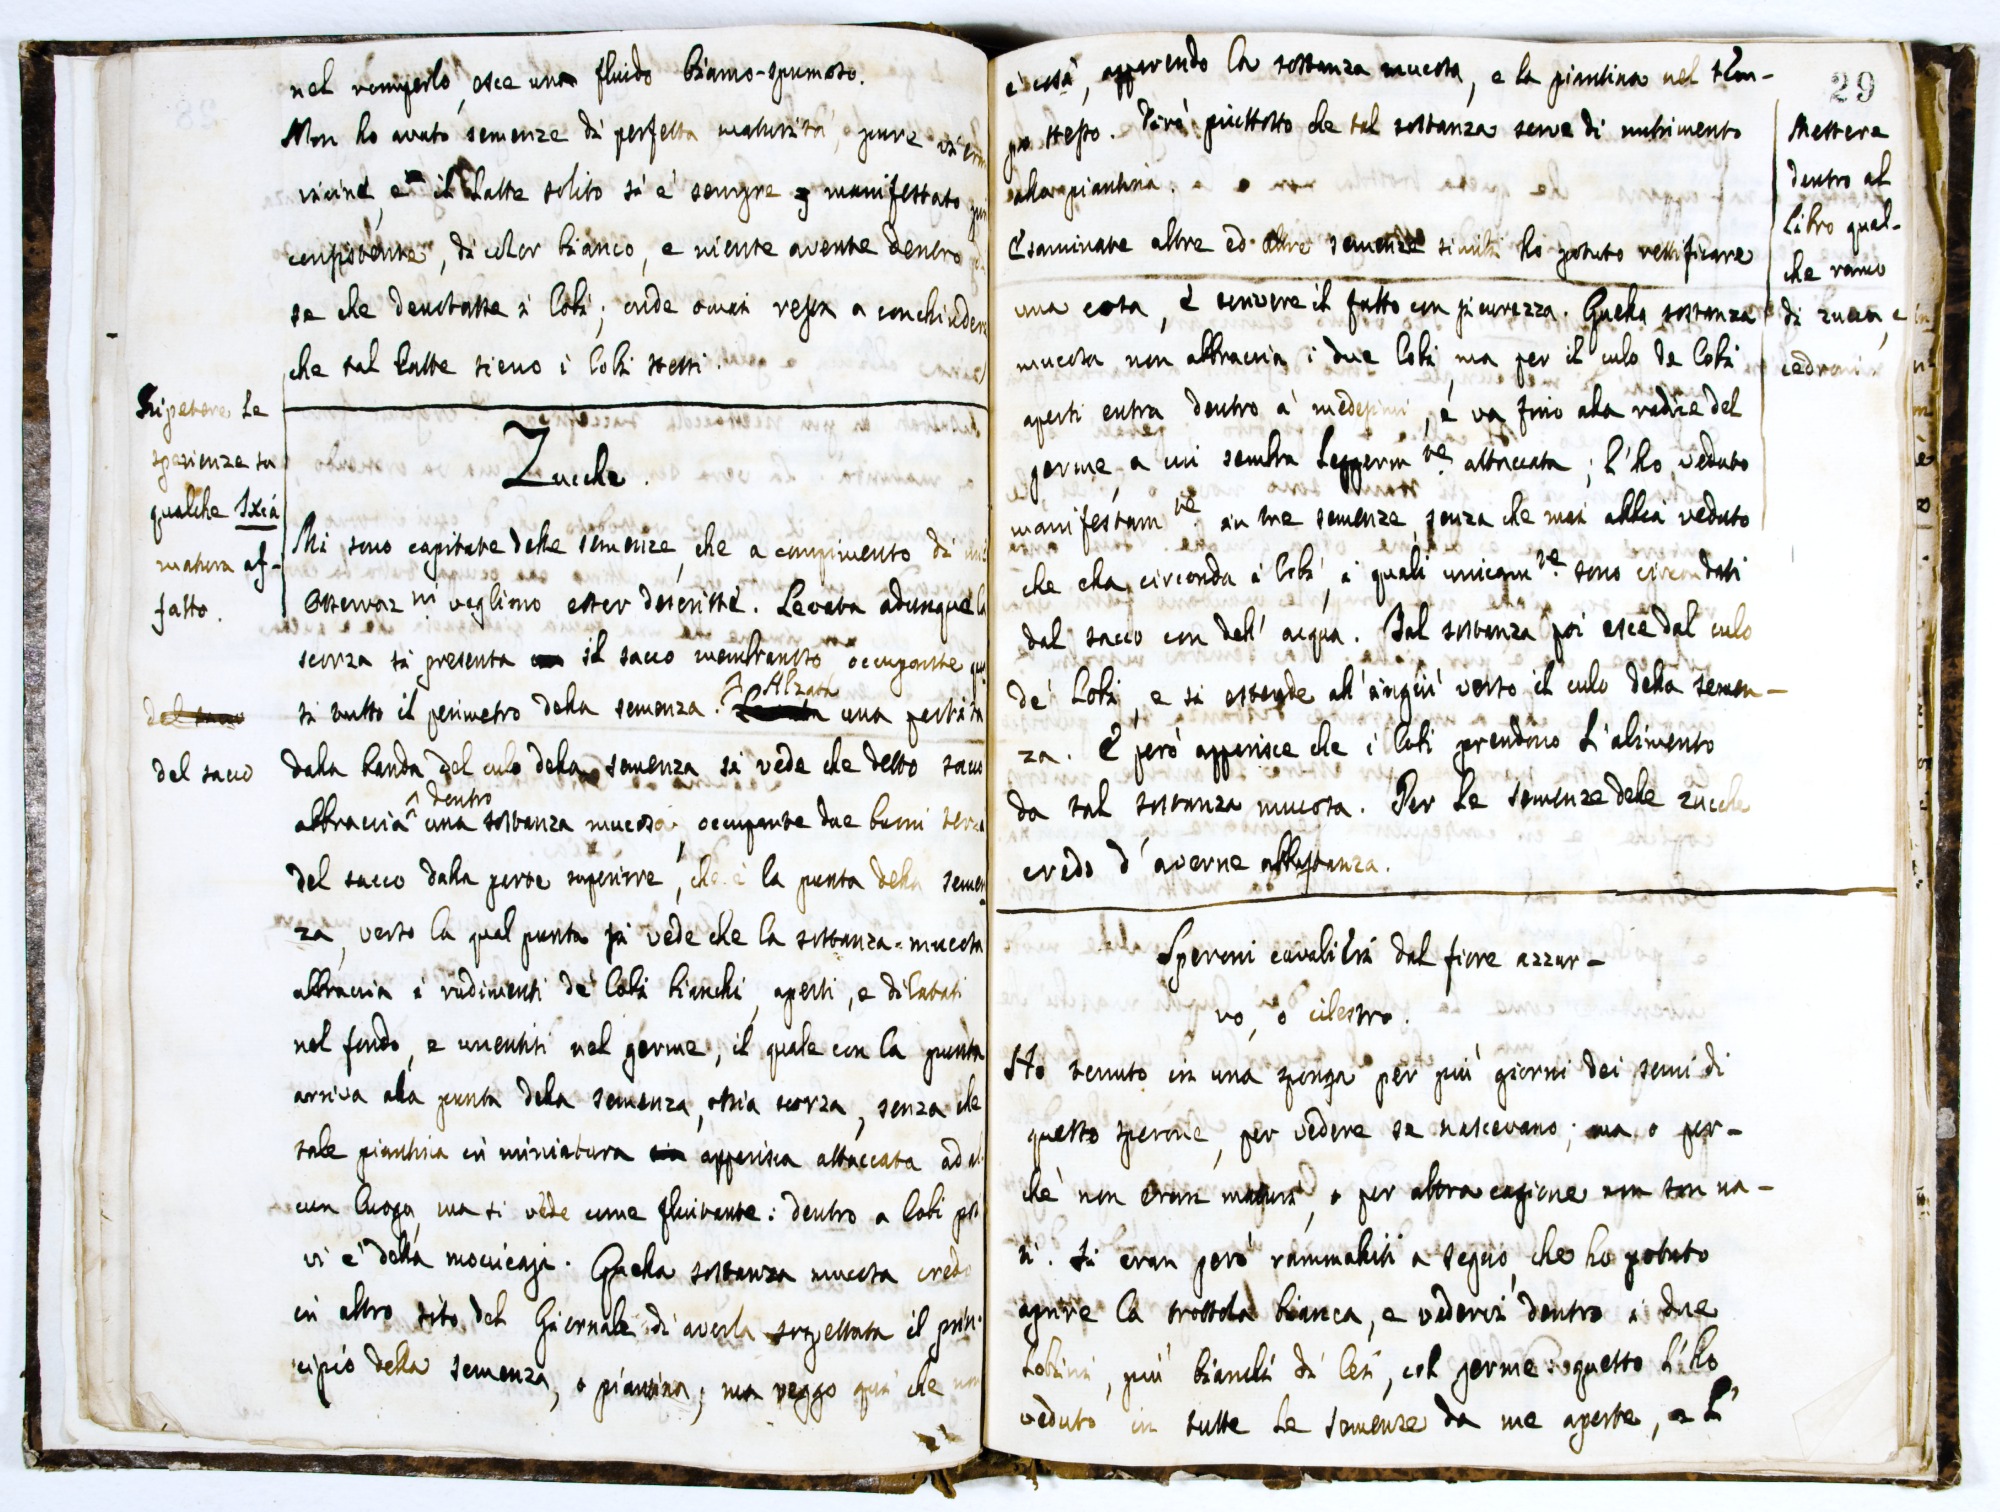 nel romperlo, esce una fluido bianco-spumoso.
Non ho avuto semenze di perfetta maturità, pure vi eran
vicine, e il latte solito si è sempre manifestato più
consistente, di color bianco, e niente avente dentro di
se che denotasse i lobi; onde omai resta a conchiudere
che tal latte sieno i lobi stessi.
Ripetere le
sperienze su
qualche Ixia
matura af-
fatto.
Zucche.
Mi sono capitate delle semenze, che a compimento di mie
osservaz.ni vogliono esser descritte. Levata adunque la
scorza si presenta il sacco membranoso occupante qua
si tutto il perimetro della semenza. Alzata una porzion
del sacco
del sacco
dalla banda del culo della semenza si vede che detto sacco
abbraccia dentro una sostanza mucosa, occupante due buoni terzi
del sacco dalla parte superiore, che è la punta della semen
za, verso la qual punta si vede che la sostanza-mucosa
abbraccia i rudimenti de' lobi bianchi, aperti, e dilatati
nel fondo, e unentisi nel germe, il quale con la punta
arriva alla punta della semenza, ossia scorza, senza che
tale piantina in miniatura apparisca attaccata ad al
cun luogo, ma si vede come fluitante: dentro a lobi poi
vi è della moccicaja. Quella sostanza mucosa credo
in altro sito del Giornale di averla sospettata il prin-
cipio della semenza, o piantina; ma veggo qui che non
29
è così, apparendo la sostanza mucosa, e la piantina nel tem-
po stesso. Pare piuttosto che tal sostanza serve di nutrimento
alla piantina.
Esaminate altre ed altre semenze simili ho potuto rettificare
una cosa, e scrivere il fatto con sicurezza. Quella sostanza
mucosa non abbraccia i due lobi, ma per il culo de lobi
aperti entra dentro a' medesimi, e va fino alla radice del
germe, a cui sembra leggerm.te attaccata; l'ho veduto
manifestam.te in tre semenze, senza che mai abbia veduto
che ella circonda i lobi, i quali unicam.te sono circondati
dal sacco con dell' acqua. Tal sostanza poi esce dal culo
de' lobi, e si estende all'ingiù verso il culo della semen-
za. E però apparisce che i lobi prendono l'alimento
da tal sostanza mucosa. Per le semenze delle zucche
credo d'averne abbastanza.
Mettere
dentro al
Libro qual-
che ramo
di zucca, e
cedroni
Speroni cavalieri dal fiore azzur-
ro, o cilestro.
Ho tenuto in una sponga per più giorni dei semi di
questo sperone, per vedere se nascevano; ma o per-
chè non eran maturi, o per altra cagione non son na-
ti. Si eran però rammolliti a segno che ho potuto
aprire la trottola bianca, e vedervi dentro i due
lobini, più bianchi di lei, col germe: questo l'ho
veduto in tutte le semenze da me aperte, e l'